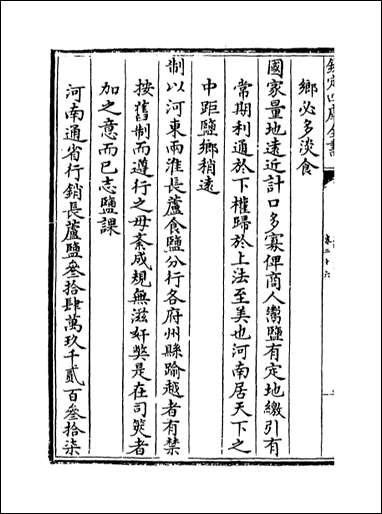 欽定四庫全書
卷二十六
鄉必多淡食
國家量地遠近計口多寡俾商人鬻鹽有定地繳引有
常期利通於下權歸於上法至美也河南居天下之
中距鹽鄉稍遠
制以河東兩淮長蘆食鹽分行各府州縣踰越者有禁
按舊制而遵行之毋紊成規無滋奸獘是在司筴者
加之意而已志鹽課
河南通省行銷長蘆鹽叁拾肆萬玖千貳百叁拾柒